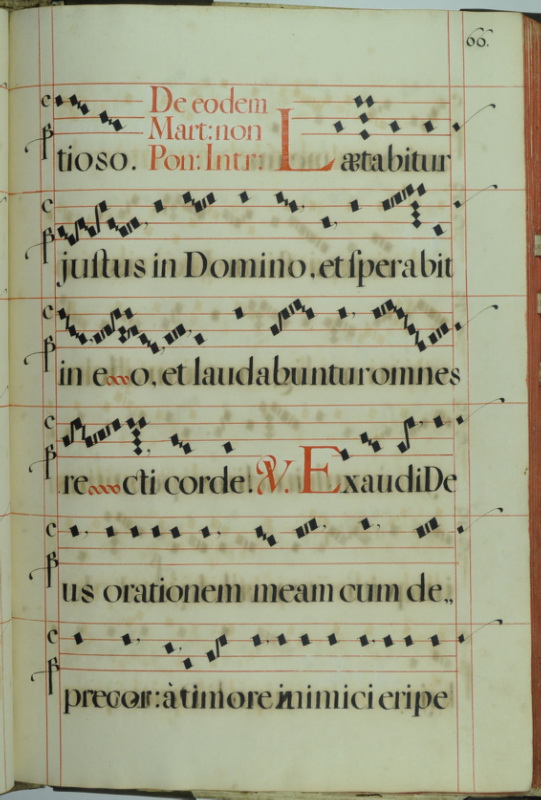 66.
De eodem
Mart: non
tioso. Pon: Intr: Lætabitur
juſtus in Domino, et ſperabit
in eo, et laudabuntur omnes
recti corde. ℣. Exaudi De
us orationem meam cum de„
precor: à timore inimici eripe